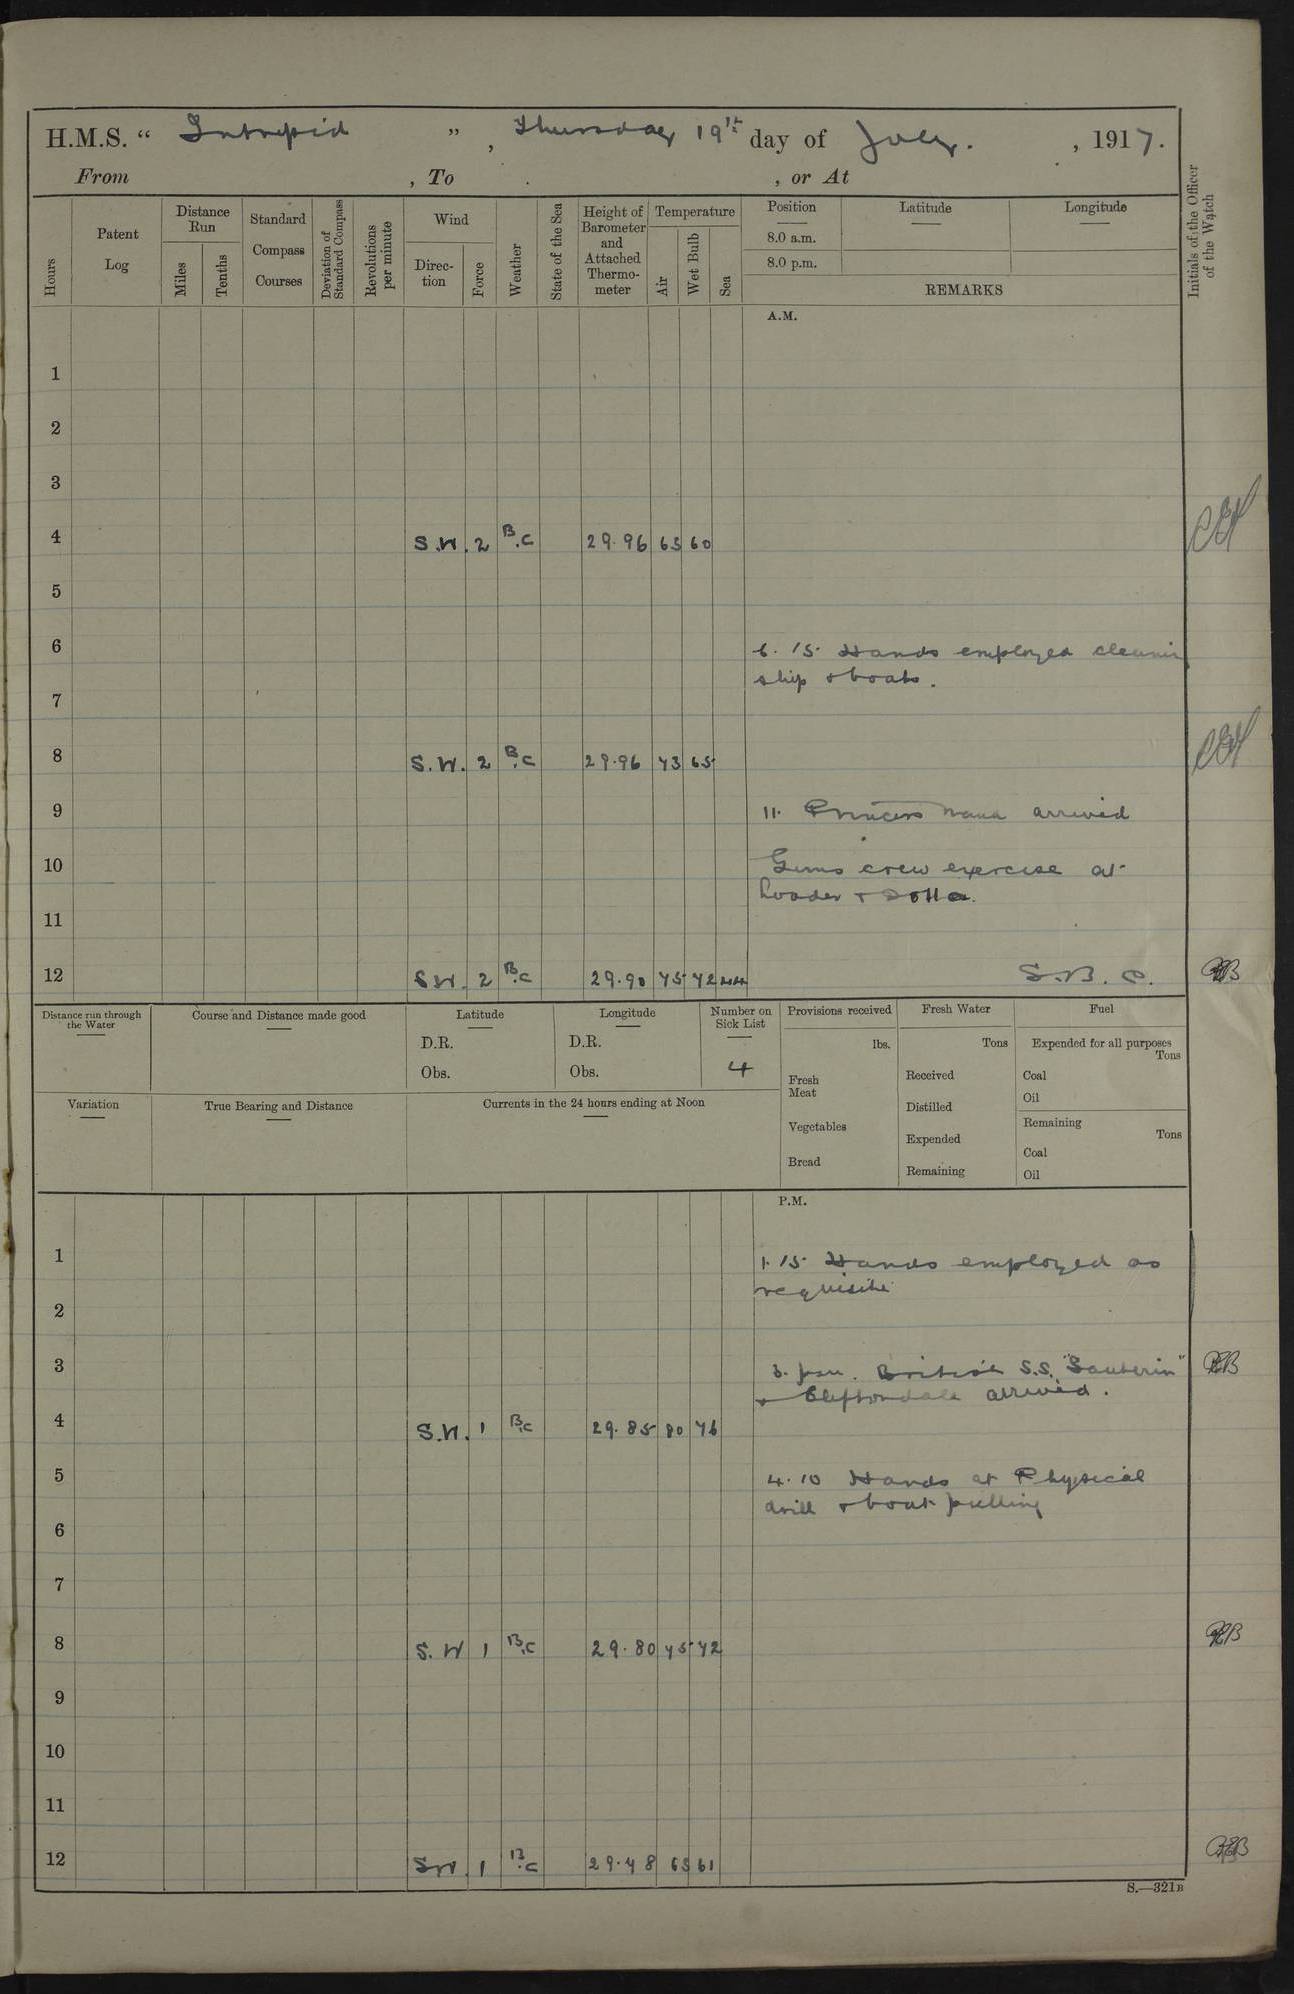 H.M.S. " Intrepid ", Thursday 19th day of July. , 1917.
From , To . , or At
Hours
Patent Log
Distance Run
Miles
Tenths
Standard Compass Courses
Deviation of Standard Compass
Revolutions per minute
Wind
Direction
Force
Weather
State of the Sea
Height of Barometer and Attached Thermometer
Temperature
Air
Wet Bulb
Sea
Position
Latitude
Longitude
8.0 a.m.
8.0 p.m.
REMARKS
Initials of the Officer of the Watch
A.M.
1
2
3
4 S.W. 2 B.C 29.96 65 60
5
6 6.15 Hands employed
ship & boats.
7
8 S.W. 2 B.C 29.96 73 65
9 11. Princess arrived
10 Guns crew exercise at
loader &
11
12 SW. 2 B.C 29.90 75 72 44 S.B.
Distance run through the Water
Course and Distance made good
Latitude
D.R.
Obs.
Longitude
D.R.
Obs.
Number on Sick List
4
Provisions received
lbs.
Fresh Meat
Vegetables
Bread
Fresh Water
Tons
Received
Distilled
Expended
Remaining
Fuel
Expended for all purposes
Tons
Coal
Oil
Remaining
Tons
Coal
Oil
Variation
True Bearing and Distance
Currents in the 24 hours ending at Noon
P.M.
1 1.15 Hands employed as
requisite
2
3 3. pm. British S.S.
& Cliftondale arrived.
4 S.W. 1 B.C 29.85 80 76
5 4.10 Hands at Physical
drill & boat pulling
6
7
8 S.W 1 B.C 29.80 75 72
9
10
11
12 SW. 1 B.C 29.78 65 61
S.—321B